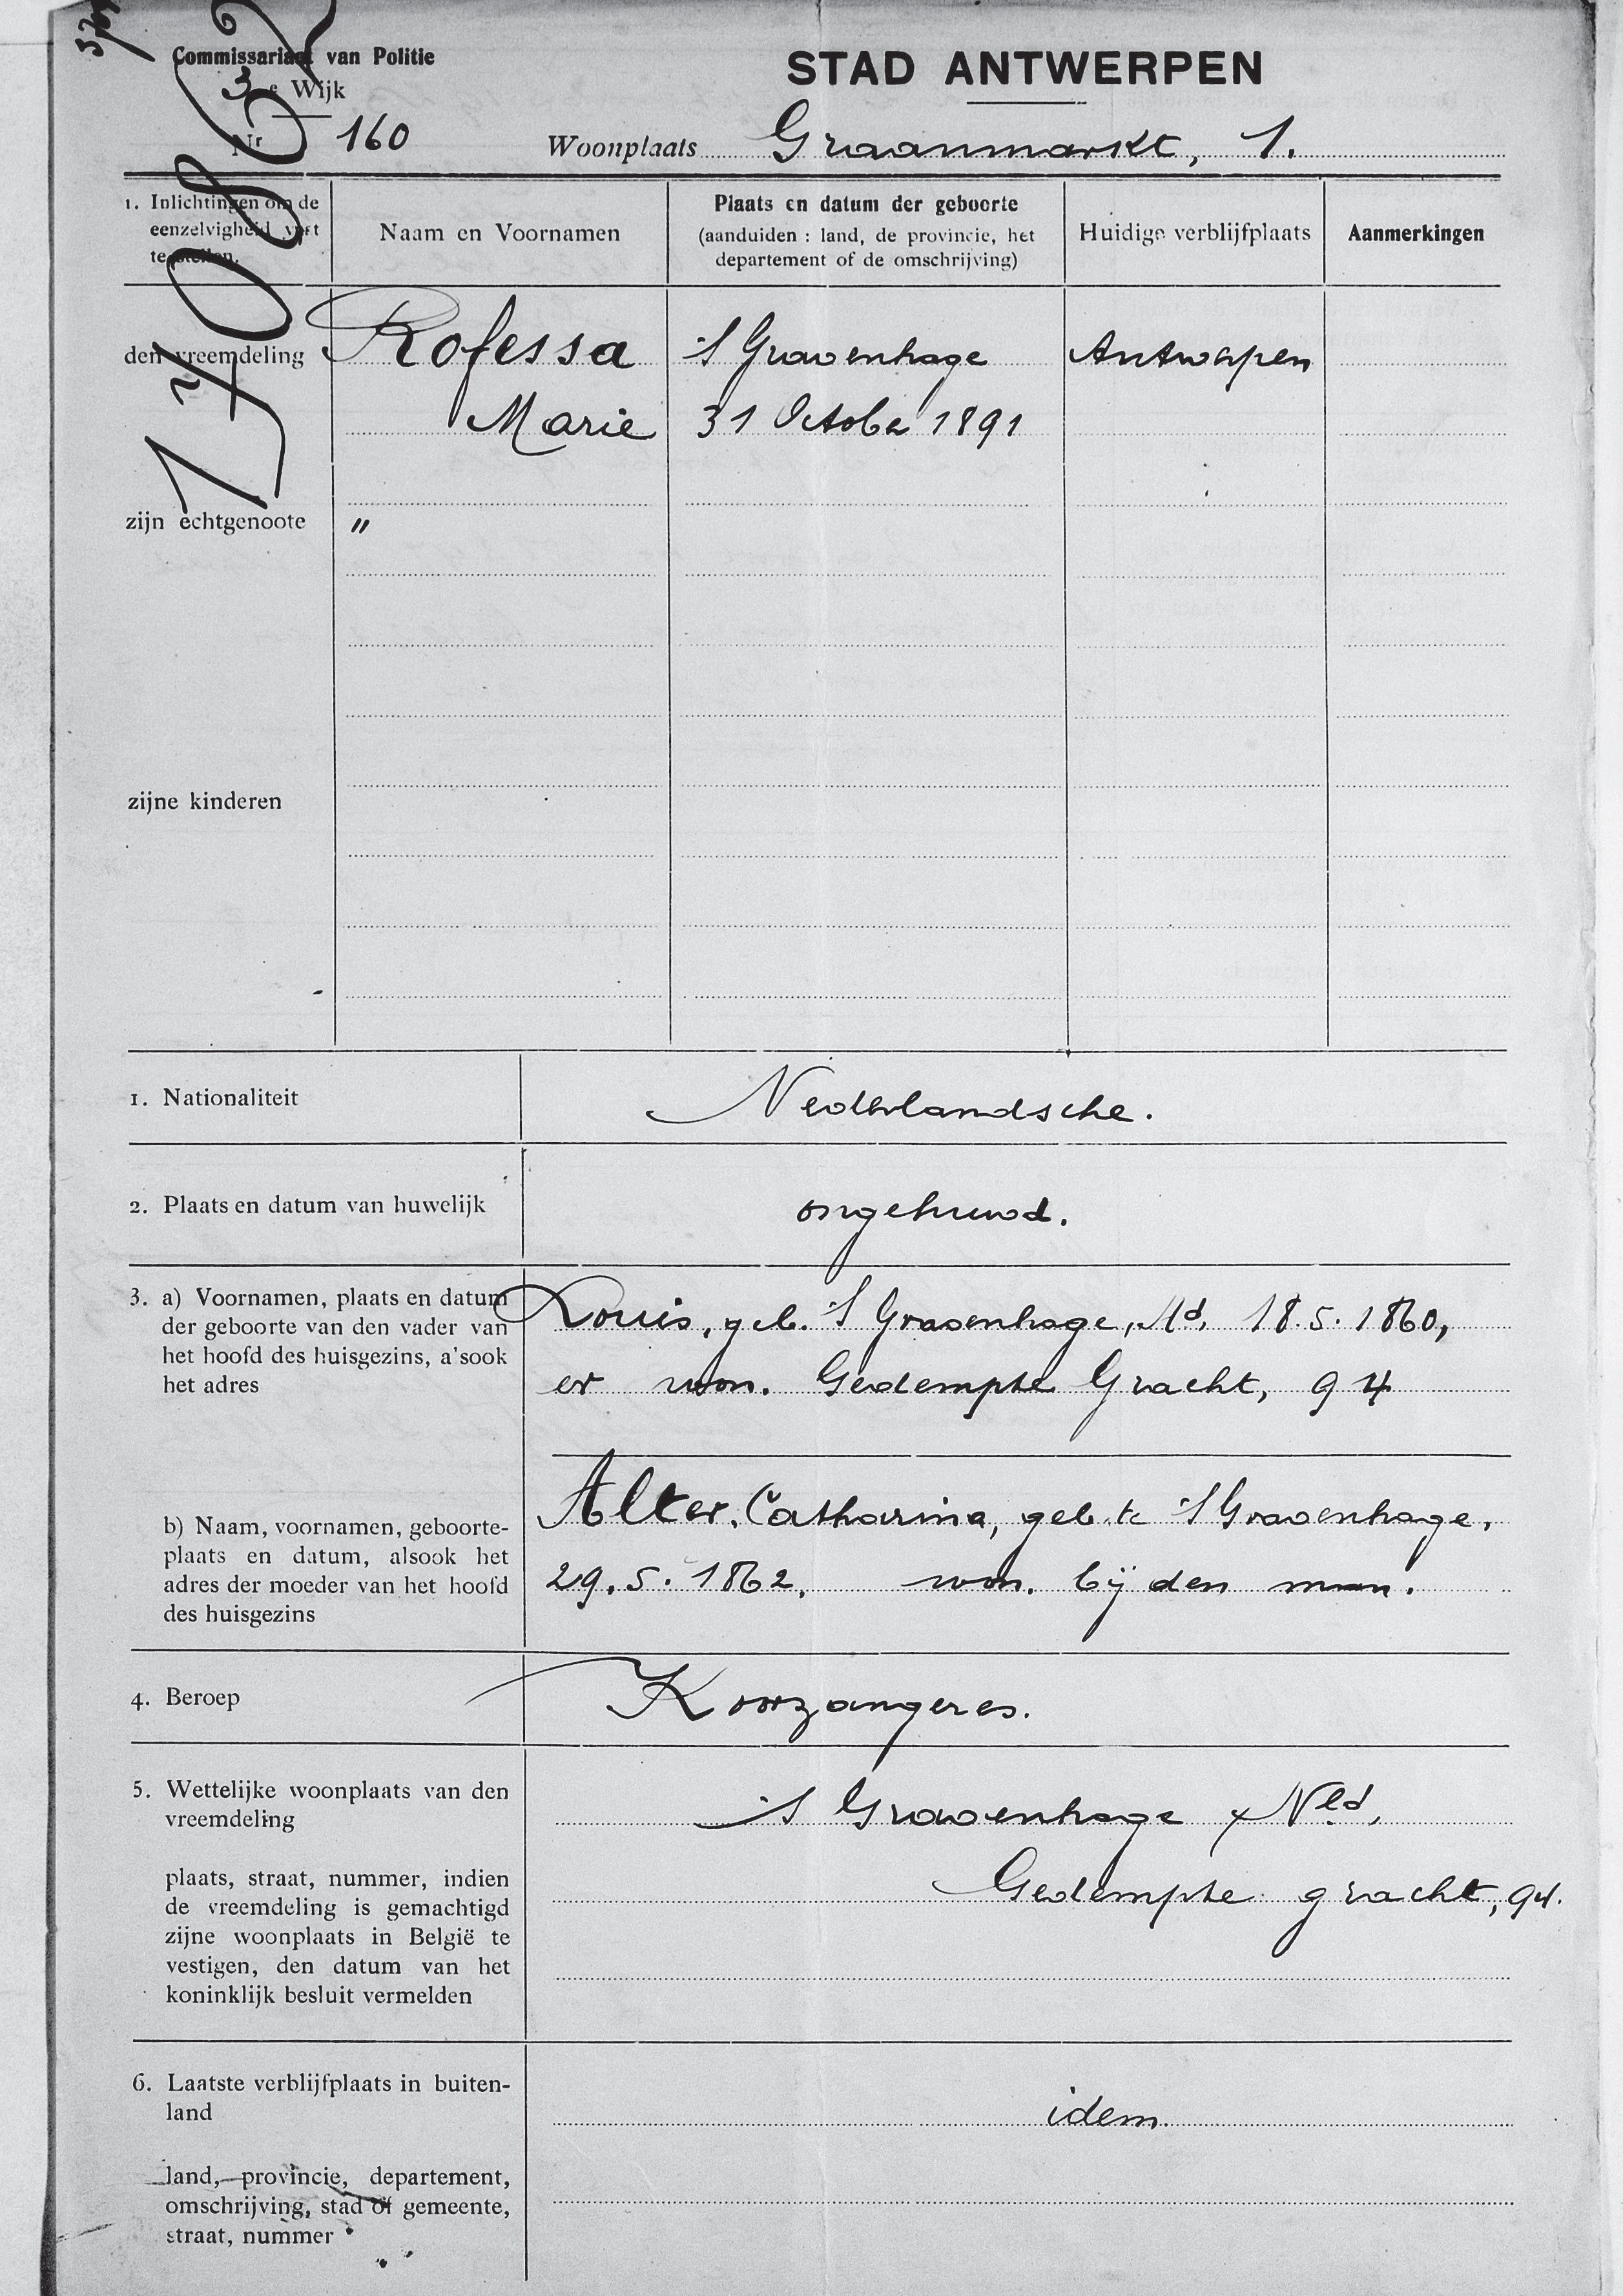 Commissariaat van Politie
3e Wijk
Nr 160
STAD ANTWERPEN
Woonplaats Graanmarkt, 1.
1. Inlichtingen om de
eenzelvigheid vast
te stellen.
Naam en Voornamen
Plaats en datum der geboorte
(aanduiden : land, de provincie, het
departement of de omschrijving)
Huidige verblijfplaats
Aanmerkingen
den vreemdeling Rofessa 'S Gravenhage Antwerpen
Marie 31 October 1891
zijn echtgenoote "
zijne kinderen
1. Nationaliteit Nederlandsche.
2. Plaats en datum van huwelijk ongehuwd.
3. a) Voornamen, plaats en datum
der geboorte van den vader van
het hoofd des huisgezins, a'sook
het adres
Louis, geb. 'S Gravenhage, Nd, 18.5.1860,
er won. Gedempte Gracht, 94
b) Naam, voornamen, geboorte-
plaats en datum, alsook het
adres der moeder van het hoofd
des huisgezins
Alter, Catharina, geb. te 'S Gravenhage,
29.5.1862, won. bij den man.
4. Beroep Koorzangeres.
5. Wettelijke woonplaats van den
vreemdeling
plaats, straat, nummer, indien
de vreemdeling is gemachtigd
zijne woonplaats in België te
vestigen, den datum van het
koninklijk besluit vermelden
'S Gravenhage, Nld,
Gedempte gracht, 94.
6. Laatste verblijfplaats in buiten-
land
land, provincie, departement,
omschrijving, stad of gemeente,
straat, nummer
idem.